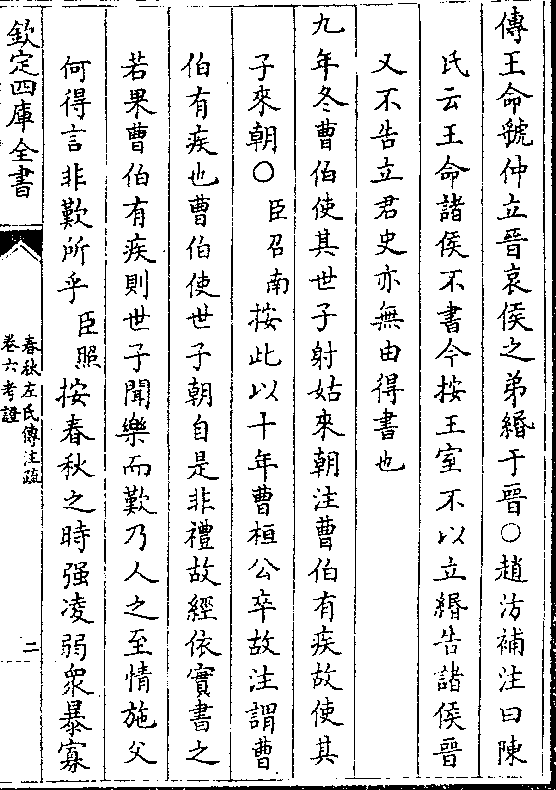 傳王命虢仲立晉哀侯之弟緡于晉〇趙汸補注曰陳
氏云王命諸侯不書今按王室不以立緡告諸侯晉
又不告立君史亦無由得書也
九年冬曹伯使其世子射姑來朝注曹伯有疾故使其
子來朝〇臣召南按此以十年曹桓公卒故注謂曹
伯有疾也曹伯使世子朝自是非禮故經依實書之
若果曹伯有疾則世子聞樂而歎乃人之至情施父
何得言非歎所乎臣照按春秋之時强凌弱衆暴寡
欽定四庫全書
春秋左氏傳注疏
卷六考證
二